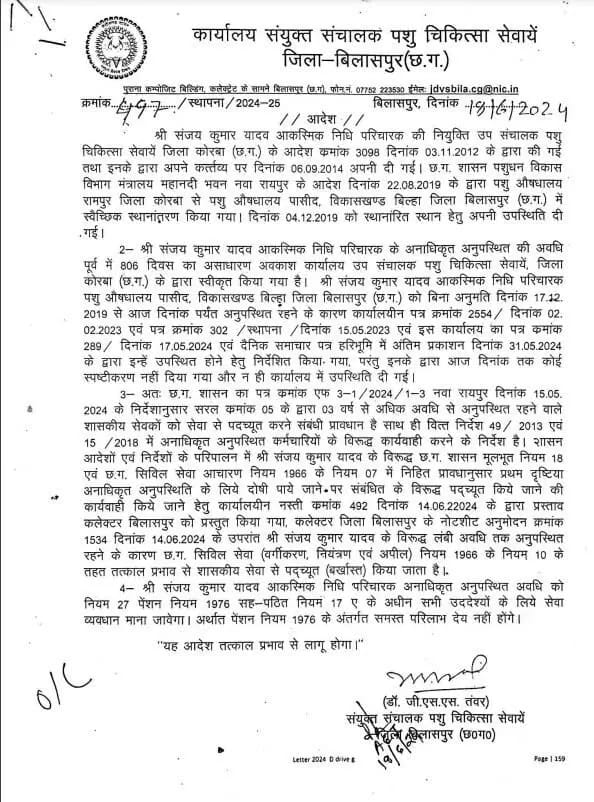 कार्यालय संयुक्त संचालक पशु चिकित्सा सेवायें
जिला–बिलासपुर(छ.ग.)
पुराना कम्पोजिट बिल्डिंग, कलेक्ट्रेट के सामने बिलासपुर (छ.ग), फोन.नं. 07752 223530 ईमेल: jdvsbila.cg@nic.in
क्रमांक 497 /स्थापना/2024-25 बिलासपुर, दिनांक 18/6/2024
// आदेश//
श्री संजय कुमार यादव आकस्मिक निधि परिचारक की नियुक्ति उप संचालक पशु
चिकित्सा सेवायें जिला कोरबा (छ.ग.) के आदेश क्रमांक 3098 दिनांक 03.11.2012 के द्वारा की गई
तथा इनके द्वारा अपने कर्त्तव्य पर दिनांक 06.09.2014 अपनी दी गई। छ.ग. शासन पशुधन विकास
विभाग मंत्रालय महानदी भवन नवा रायपुर के आदेश दिनांक 22.08.2019 के द्वारा पशु औषधालय
रामपुर जिला कोरबा से पशु औषधालय पासीद, विकासखण्ड बिल्हा जिला बिलासपुर (छ.ग.) में
स्वैच्छिक स्थानांतरण किया गया। दिनांक 04.12.2019 को स्थानांरित स्थान हेतु अपनी उपस्थिति दी
गई।
2– श्री संजय कुमार यादव आकस्मिक निधि परिचारक के अनाधिकृत अनुपस्थित की अवधि
पूर्व में 806 दिवस का असाधारण अवकाश कार्यालय उप संचालक पशु चिकित्सा सेवायें, जिला
कोरबा (छ.ग.) के द्वारा स्वीकृत किया गया है। श्री संजय कुमार यादव आकस्मिक निधि परिचारक
पशु औषधालय पासीद, विकासखण्ड बिल्हा जिला बिलासपुर (छ.ग.) को बिना अनुमति दिनांक 17.12.
2019 से आज दिनांक पर्यंत अनुपस्थित रहने के कारण कार्यालयीन पत्र क्रमांक 2554/ दिनांक 02.
02.2023 एवं पत्र क्रमांक 302 /स्थापना /दिनांक 15.05.2023 एवं इस कार्यालय का पत्र क्रमांक
289/ दिनांक 17.05.2024 एवं दैनिक समाचार पत्र हरिभूमि में अंतिम प्रकाशन दिनांक 31.05.2024
के द्वारा इन्हें उपस्थित होने हेतु निर्देशित किया गया, परंतु इनके द्वारा आज दिनांक तक कोई
स्पष्टीकरण नहीं दिया गया और न ही कार्यालय में उपस्थिति दी गई।
3– अतः छ.ग. शासन का पत्र क्रमांक एफ 3–1/2024/1–3 नवा रायपुर दिनांक 15.05.
2024 के निर्देशानुसार सरल क्रमांक 05 के द्वारा 03 वर्ष से अधिक अवधि से अनुपस्थित रहने वाले
शासकीय सेवकों को सेवा से पदच्यूत करने संबंधी प्रावधान है साथ ही वित्त निर्देश 49/ 2013 एवं
15 /2018 में अनाधिकृत अनुपस्थित कर्मचारियों के विरूद्ध कार्यवाही करने के निर्देश है। शासन
आदेशों एवं निर्देशों के परिपालन में श्री संजय कुमार यादव के विरूद्ध छ.ग. शासन मूलभूत नियम 18
एवं छ.ग. सिविल सेवा आचारण नियम 1966 के नियम 07 में निहित प्रावधानुसार प्रथम दृष्टिया
अनाधिकृत अनुपस्थिति के लिये दोषी पाये जाने पर संबंधित के विरूद्ध पद्च्यूत किये जाने की
कार्यवाही किये जाने हेतु कार्यालयीन नस्ती क्रमांक 492 दिनांक 14.06.22024 के द्वारा प्रस्ताव
कलेक्टर बिलासपुर को प्रस्तुत किया गया, कलेक्टर जिला बिलासपुर के नोटशीट अनुमोदन क्रमांक
1534 दिनांक 14.06.2024 के उपरांत श्री संजय कुमार यादव के विरूद्ध लंबी अवधि तक अनुपस्थित
रहने के कारण छ.ग. सिविल सेवा (वर्गीकरण, नियंत्रण एवं अपील) नियम 1966 के नियम 10 के
तहत तत्काल प्रभाव से शासकीय सेवा से पद्च्यूत (बर्खास्त) किया जाता है।
4– श्री संजय कुमार यादव आकस्मिक निधि परिचारक अनाधिकृत अनुपस्थित अवधि को
नियम 27 पेंशन नियम 1976 सह–पठित नियम 17 ए के अधीन सभी उददेश्यों के लिये सेवा
व्यवधान माना जावेगा। अर्थात पेंशन नियम 1976 के अंतर्गत समस्त परिलाभ देय नहीं होंगे।
"यह आदेश तत्काल प्रभाव से लागू होगा।"
O/C
(डॉ. जी.एस.एस. तंवर)
संयुक्त संचालक पशु चिकित्सा सेवायें
जिला बिलासपुर (छ0ग0)
18/6/24
Letter 2024 D drive g Page | 159